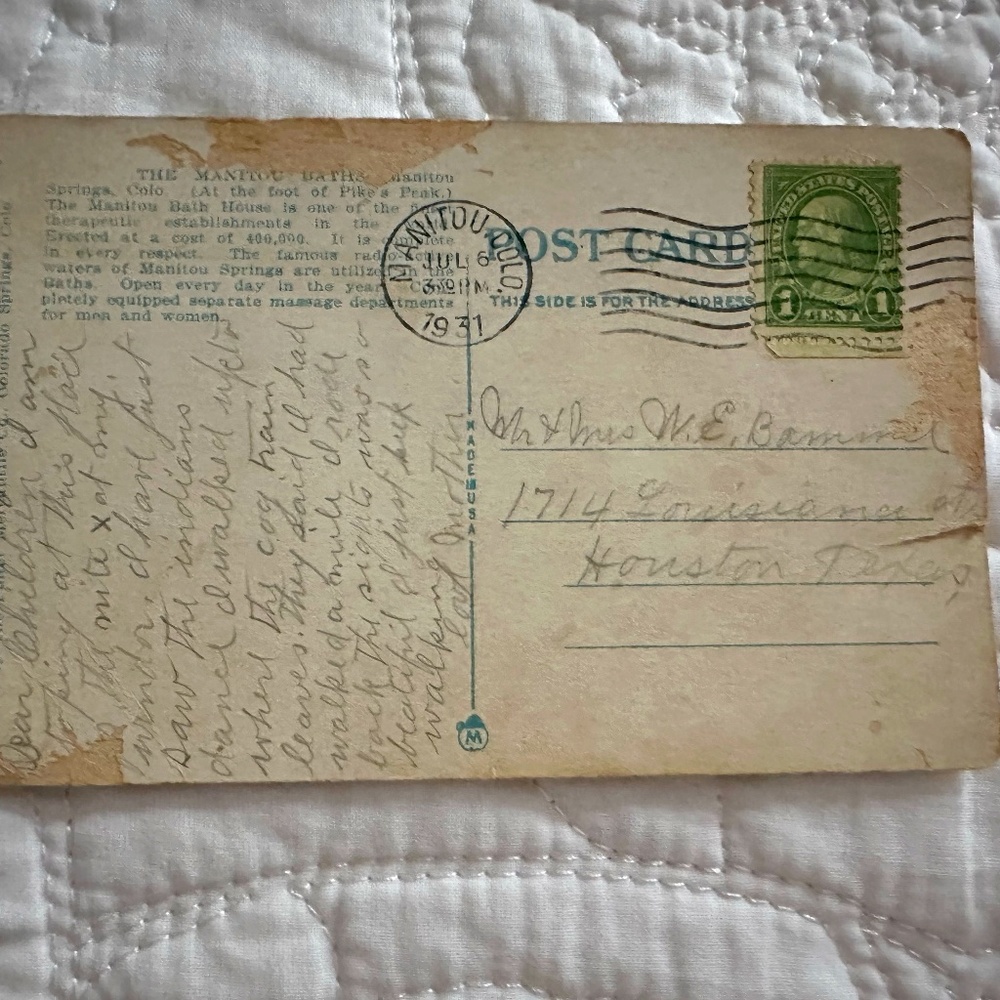 THE MANITOU BATHS, Manitou
Springs, Colo. (At the foot of Pike's Peak.)
The Manitou Bath House is one of the
therapeutic establishments in the
Erected at a cost of 400,000. It is complete
in every respect. The famous
waters of Manitou Springs are utilized in the
Baths. Open every day in the year. Com-
pletely equipped separate massage departments
for men and women.
Colorado Springs, Colo
MANITOU COLO.
JUL 6
3 PM
1931
POST CARD
THIS SIDE IS FOR THE ADDRESS
UNITED STATES POSTAGE
1 CENT 1
MADE IN USA
M
Dear Children I am
at this place
to nite x at my
window. I have just
saw the indians
dance I walked up to
where the cog train
leaves. they said I had
walked a mile I rode
back the sights was so
beautiful I just kep
walking
love Mother
Mr & Mrs W.E. Bammel
1714 Louisiana st
Houston Texas